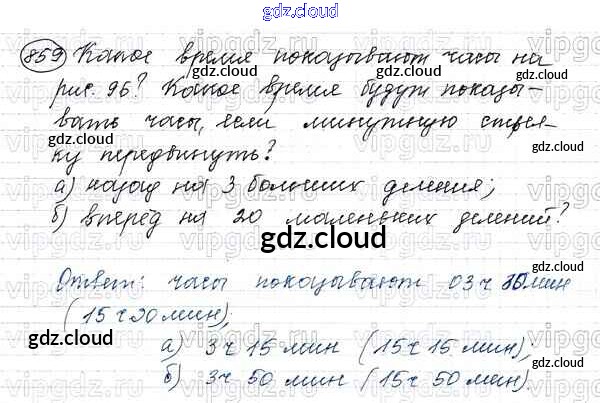 gdz.cloud
859) Какое время показывают часы на
рис. 96? Какое время будут показы-
вать часы, если минутную стрел-
ку передвинуть?
а) назад на 3 больших деления;
б) вперёд на 20 маленьких делений?
gdz.cloud
Ответ: часы показывают 03 ч 30 мин
(15 ч 30 мин);
а) 3 ч 15 мин (15 ч 15 мин);
б) 3 ч 50 мин (15 ч 50 мин).